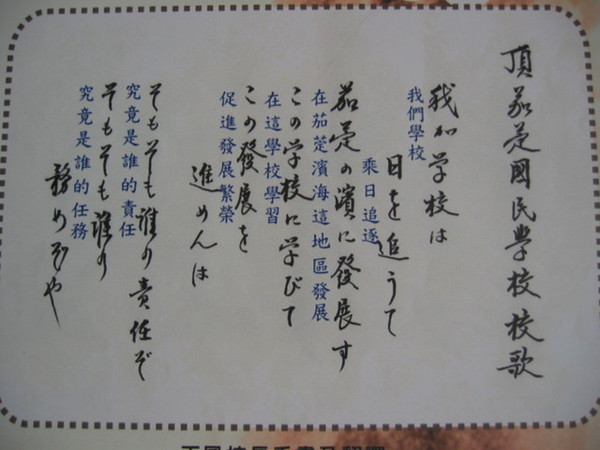 頂茄萣國民學校校歌
我が学校は
我們學校
日を追うて
乘日追逐
茄萣の濱に發展す
在茄萣濱海這地區發展
この学校に学びて
在這學校學習
この發展を
促進發展繁榮
進めんは
そもそも誰の責任ぞ
究竟是誰的責任
そもそも誰の
究竟是誰的任務
務めぞや